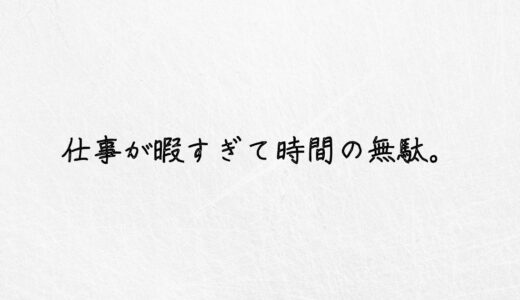 仕事が暇すぎて時間の無駄。